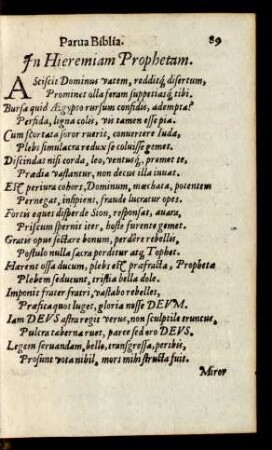 Parua Biblia. 89
In Hieremiam Prophetam.
ASciscit Dominus vatem, redditq́; disertum,
Prominet olla feram suppetiasq́; tibi.
Bursa quid Ægypto rursum confidis, adempta?
Perfida, ligna colis, vos tamen esse pia.
Cum scortata soror ruerit, convertere Iuda,
Plebs simulacra redux se coluisse gemet.
Discindas nisi corda, leo, ventusq́; premet te,
Prædia vastantur, non decus illa iuvat.
Est periura cohors, Dominum, mœchata, potentem
Pernegat, insipient, fraude lucratur opes.
Fortis eques disperde Sion, responsat, avara,
Priscum spernit iter, hoste furente gemet.
Gratis opus sectare bonum, perdêre rebellis,
Postulo nulla sacra perditur atq; Tophet.
Hærent ossa ducum, plebs est præfracta, Prophetæ
Plebem seducunt, tristia bella dole.
Imponit frater fratri, vastabo rebelles,
Præfica quos luget, gloria nosse DEVM.
Iam DEVS astra regit verus, non sculptile truncus,
Pulcra taberna ruet, parce sed oro DEVS.
Legem servandam, bello, transgressa, peribis,
Prosunt vota nihil, mors mihi structa fuit.
Miror